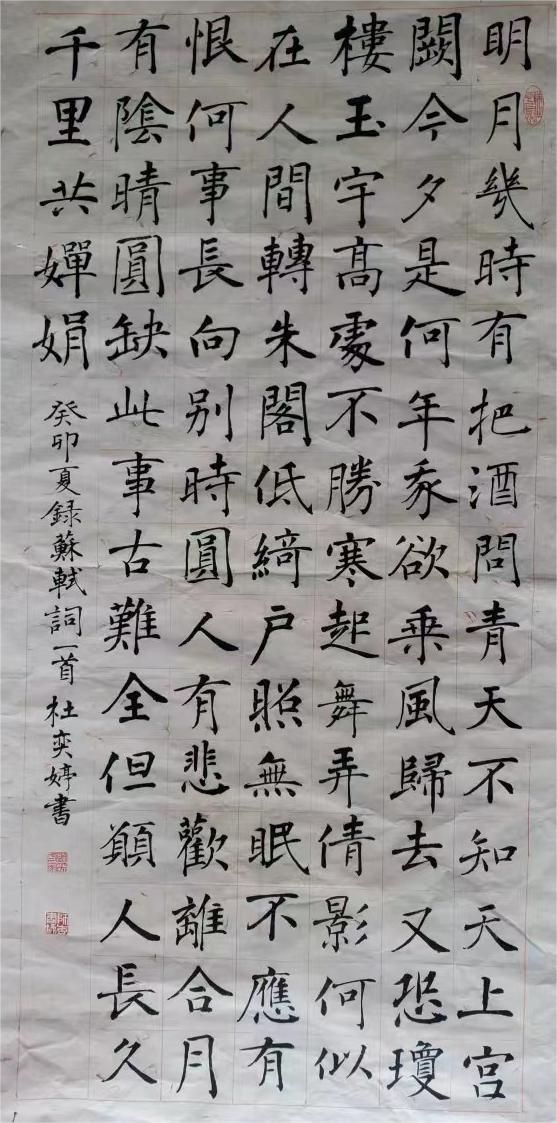 明月幾時有把酒問青天不知天上宫
闕今夕是何年我欲乗風歸去又恐瓊
樓玉宇髙處不勝寒起舞弄倩影何似
在人間轉朱閣低綺户照無眠不應有
恨何事長向别時圓人有悲歡離合月
有陰晴圓缺此事古難全但願人長久
千里共嬋娟
癸卯夏録蘇軾詞一首杜奕婷書